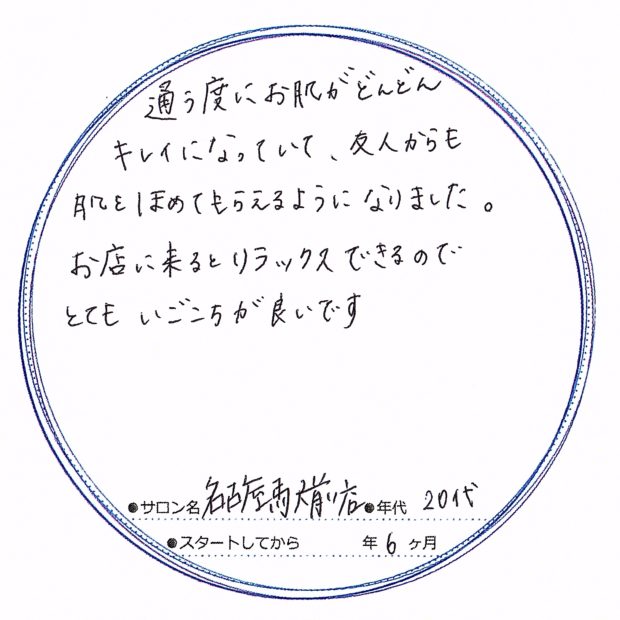 通う度にお肌がどんどん
キレイになっていて、友人からも
肌をほめてもらえるようになりました。
お店に来るとリラックスできるので
とても いごこちが良いです
●サロン名 名古屋駅前店 ●年代 20代
●スタートしてから 年 6 ヶ月